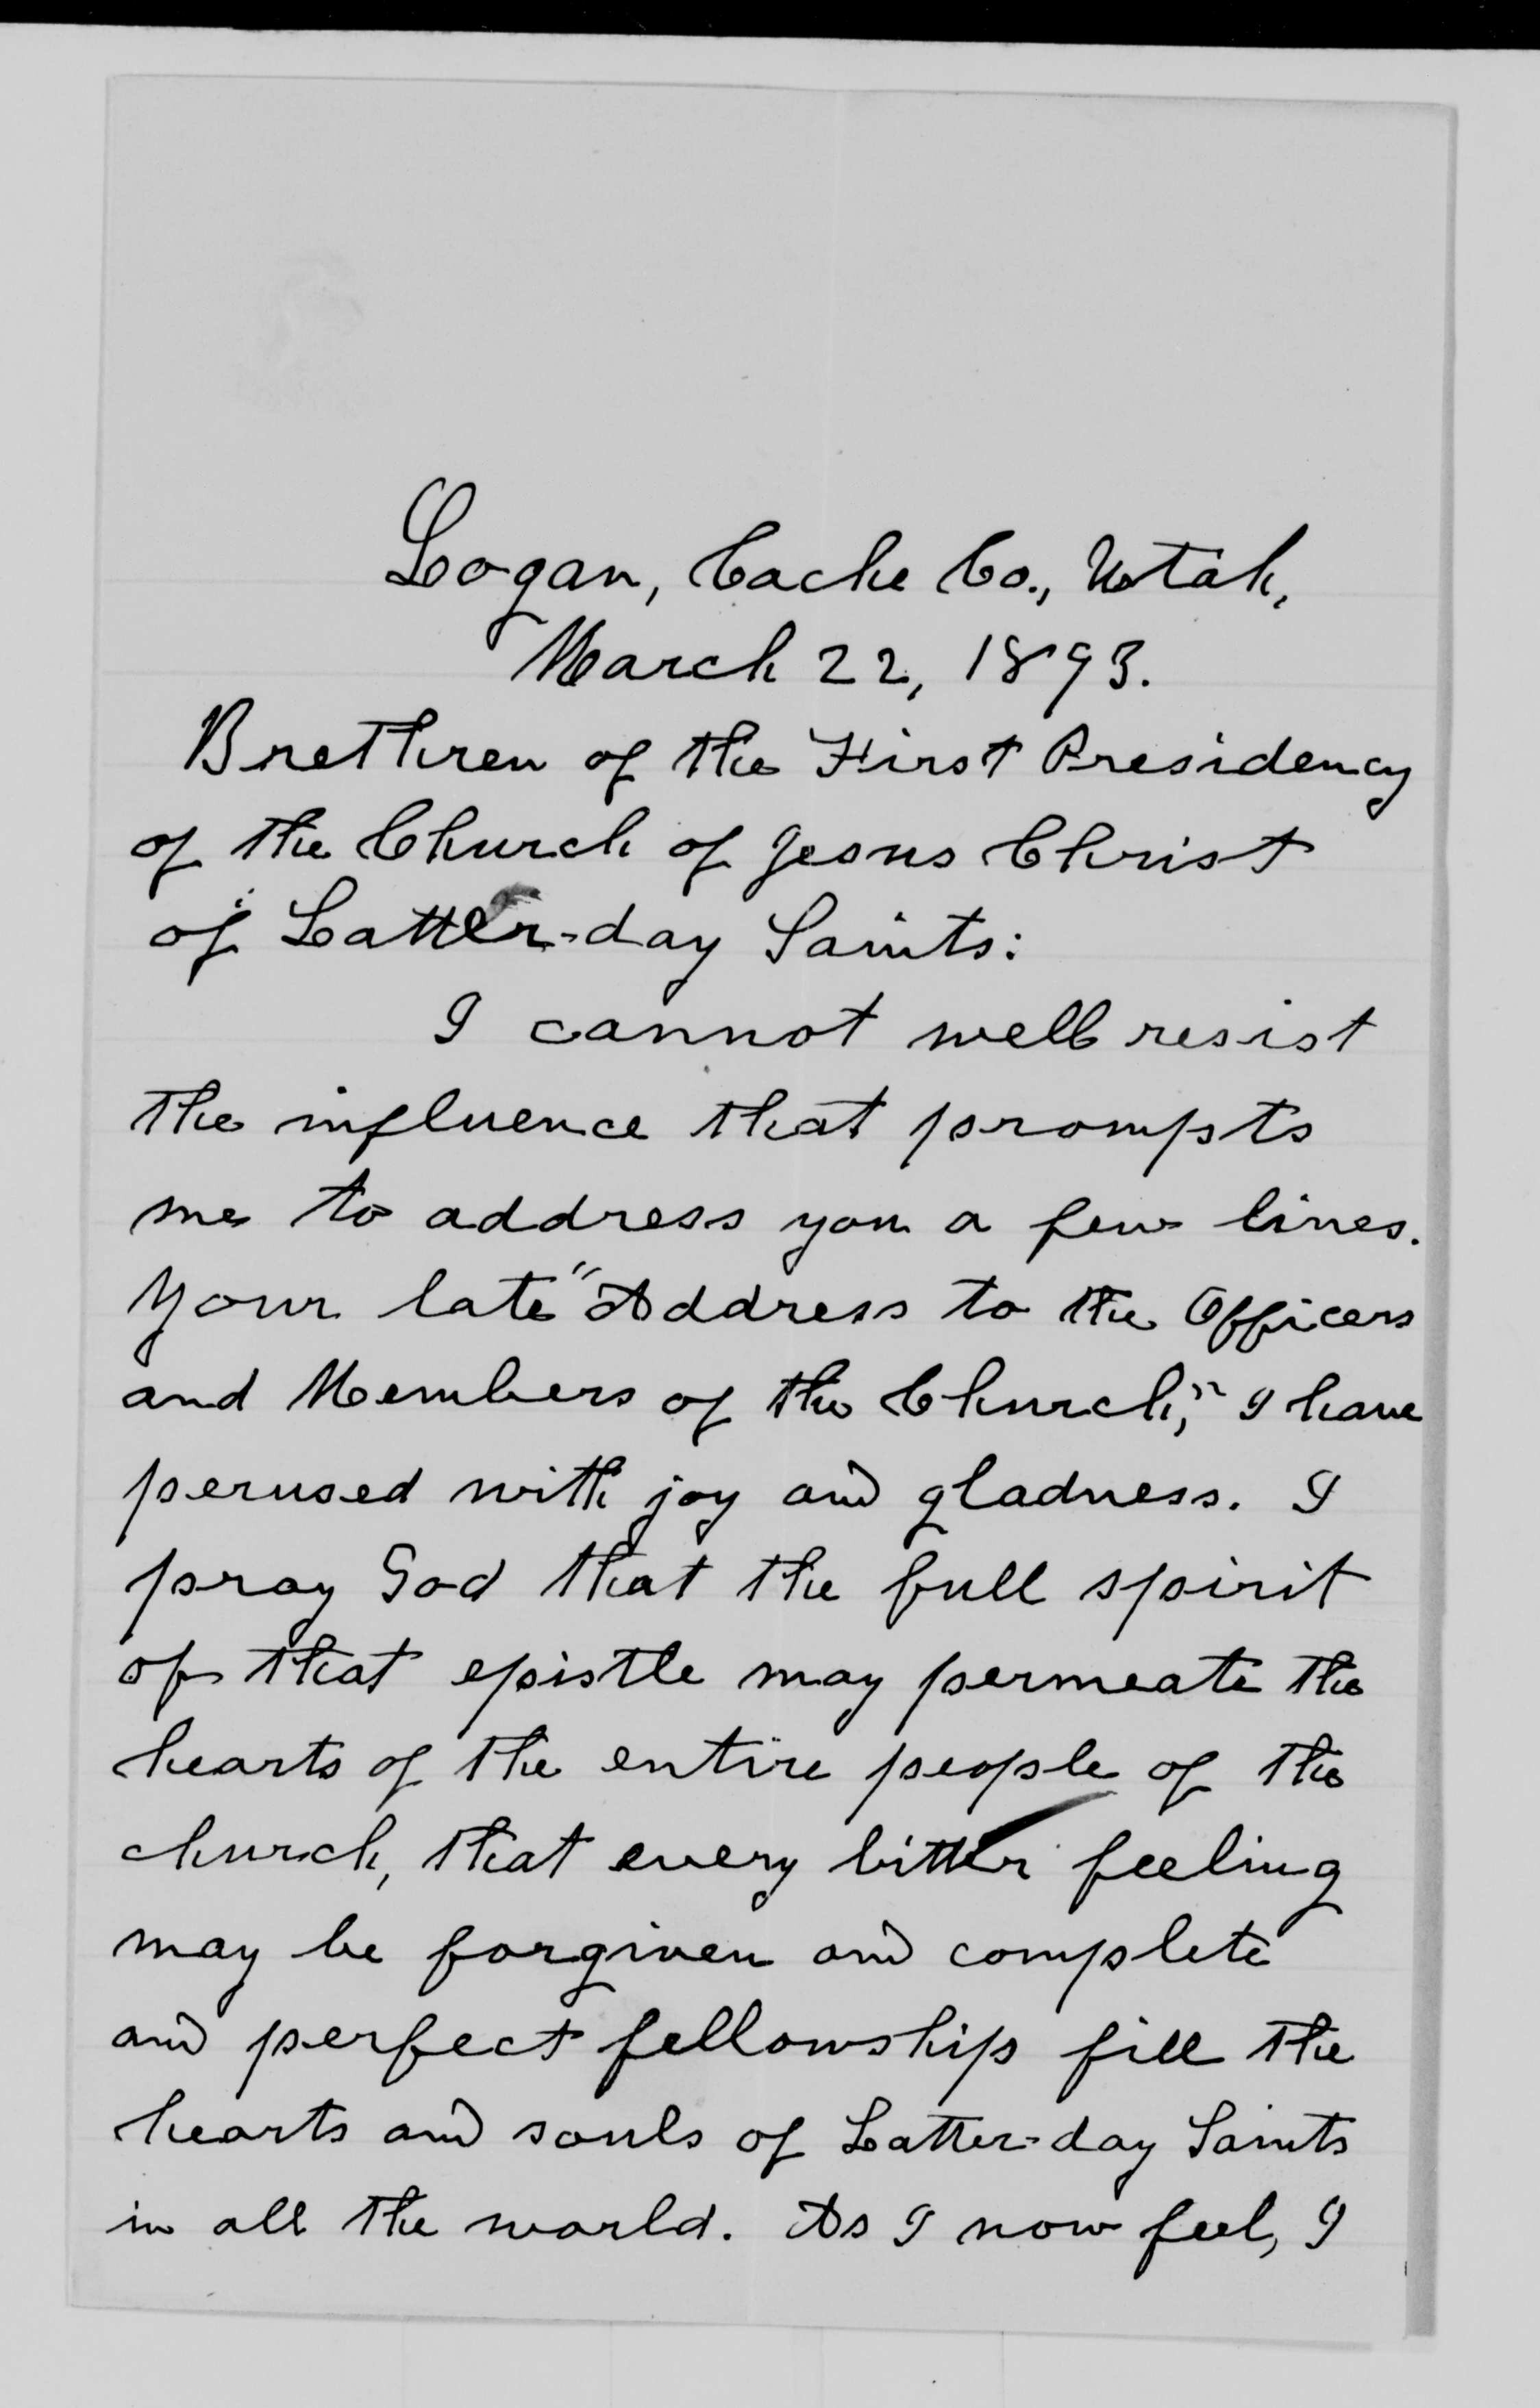 Logan, Cache Co., Utah,
March 22, 1893.
Brethren of the First Presidency
of the Church of Jesus Christ
of Latter-day Saints:
I cannot well resist
the influence that prompts
me to address you a few lines.
Your late "Address to the Officers
and Members of the Church," I have
perused with joy and gladness. I
pray God that the full spirit
of that epistle may permeate the
hearts of the entire people of the
church, that every bitter feeling
may be forgiven and complete
and perfect fellowship fill the
hearts and souls of Latter-day Saints
in all the world. As I now feel, I